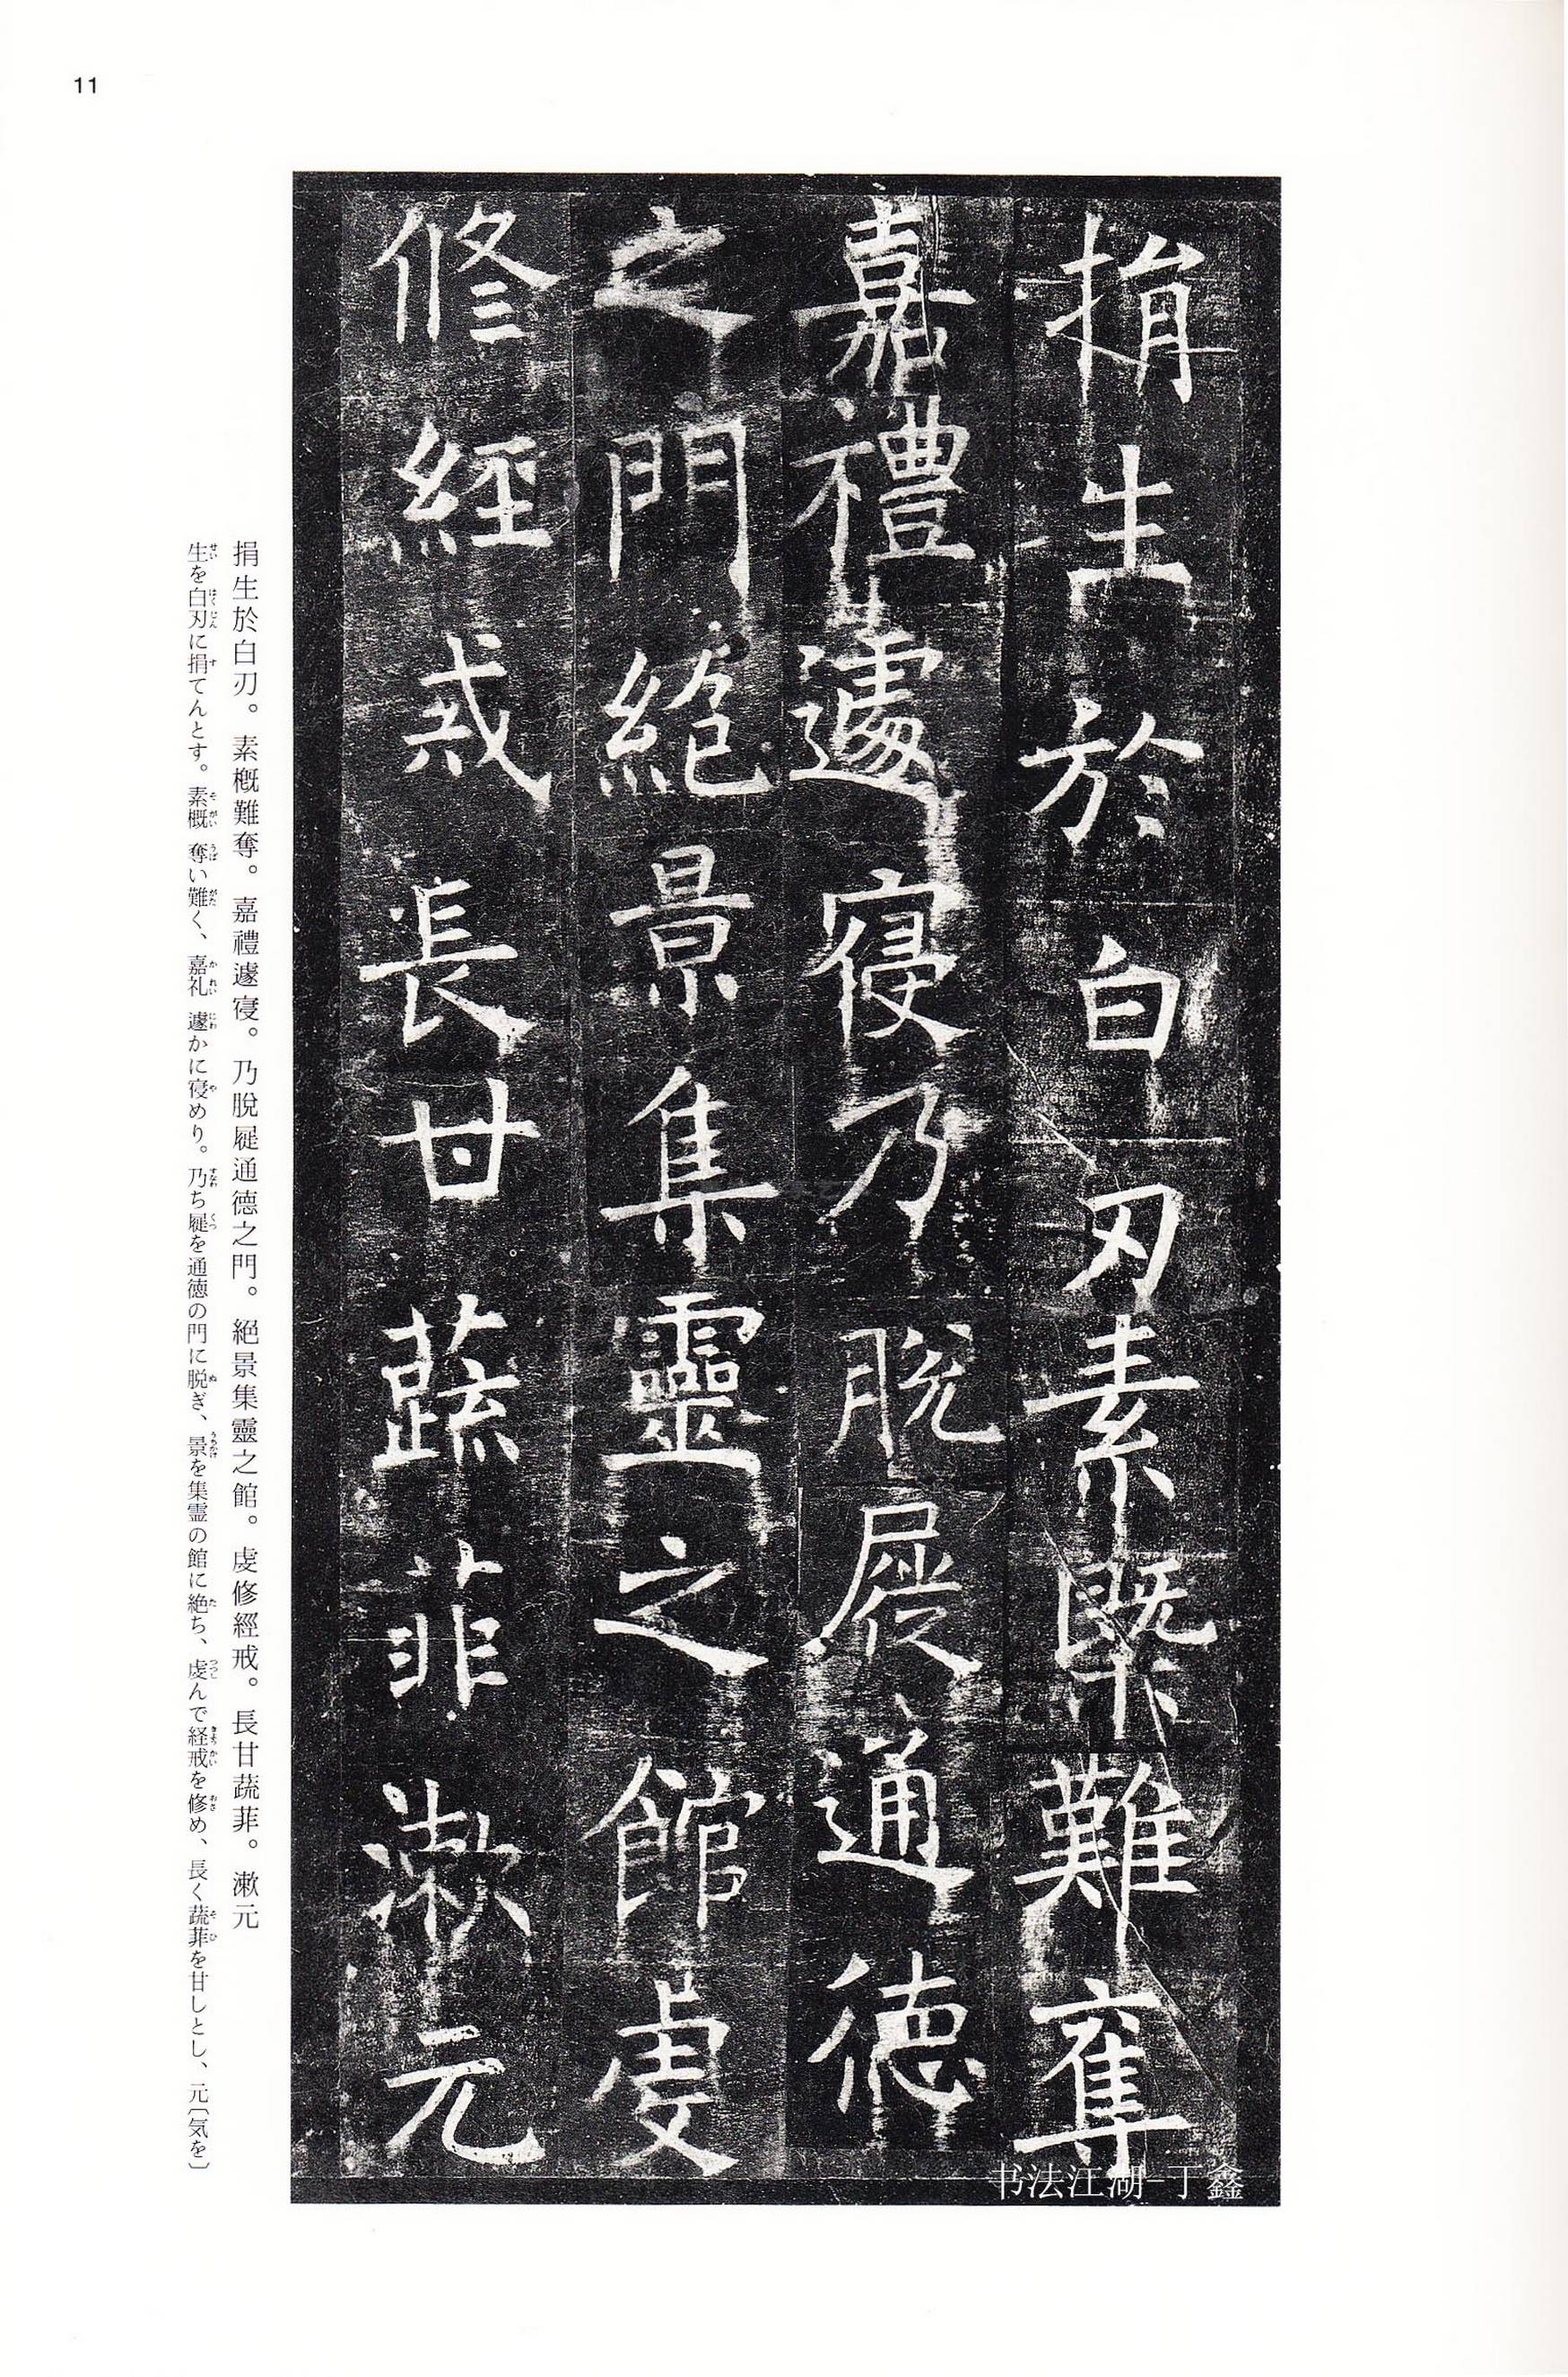 11
捐生於白刃素槩難奪
嘉禮遽寑乃脫屣通德
之門絕景集靈之館虔
修經戒長甘蔬菲漱元
书法江湖–丁鑫
捐生於白刃。素槪難奪。嘉禮遽寑。乃脫屣通德之門。絕景集靈之館。虔修經戒。長甘蔬菲。漱元
生を白刃に捐てんとす。素概 奪い難く、嘉礼 遽かに寑めり。乃ち屣を通徳の門に脱ぎ、景を集霊の館に絶ち、虔んで経戒を修め、長く蔬菲を甘しとし、元〔気を〕